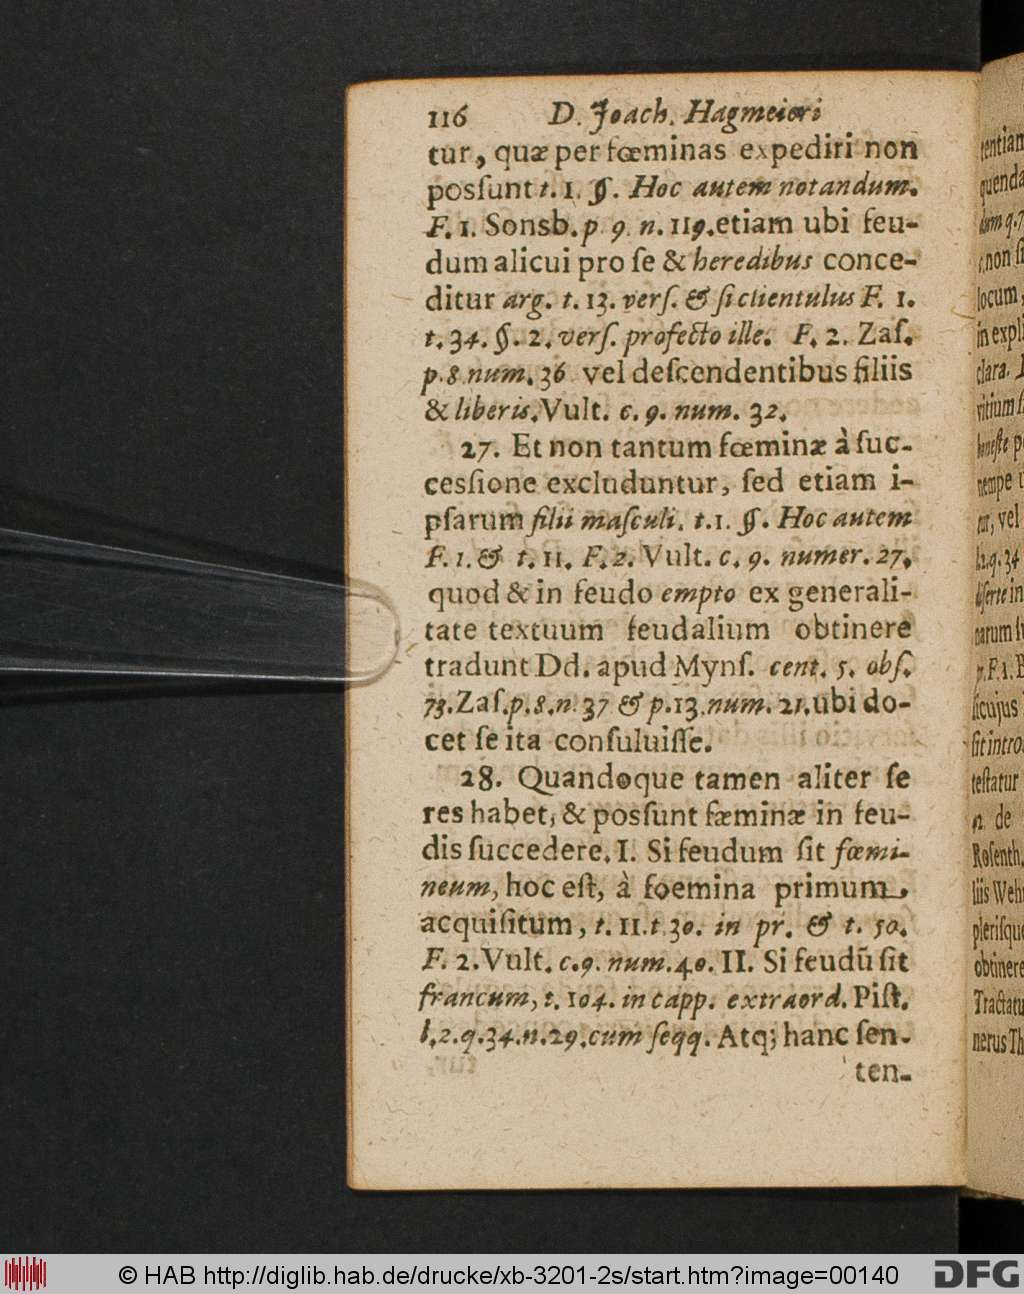 116 D. Joach. Hagmeieri
tur, quæ per fœminas expediri non
posſunt t. 1. §. Hoc autem notandum.
F. 1. Sonsb. p. 9. n. 119. etiam ubi feu-
dum alicui pro ſe & heredibus conce-
ditur arg. t. 13. verſ. & ſi clientulus F. 1.
t. 34. §. 2. verſ. profecto ille. F. 2. Zaſ.
p. 8 num. 36 vel deſcendentibus filiis
& liberis. Vult. c. 9. num. 32.
27. Et non tantum fœminæ à ſuc-
cesſione excluduntur, ſed etiam i-
pſarum filii maſculi. t. 1. §. Hoc autem
F. 1. & t. 11. F. 2. Vult. c. 9. numer. 27.
quod & in feudo empto ex generali-
tate textuum feudalium obtinere
tradunt Dd. apud Mynſ. cent. 5. obſ.
73. Zaſ. p. 8. n. 37 & p. 13. num. 21. ubi do-
cet ſe ita conſuluiſſe.
28. Quandoque tamen aliter ſe
res habet, & posſunt fæminæ in feu-
dis ſuccedere. I. Si feudum ſit fœmi-
neum, hoc eſt, à foemina primum
acquiſitum, t. 11. t. 30. in pr. & t. 50.
F. 2. Vult. c. 9. num. 40. II. Si feudũ ſit
francum, t. 104. in capp. extraord. Piſt.
l. 2. q. 34. n. 29. cum ſeqq. Atq; hanc ſen-
ten-
© HAB http://diglib.hab.de/drucke/xb-3201-2s/start.htm?image=00140
DFG